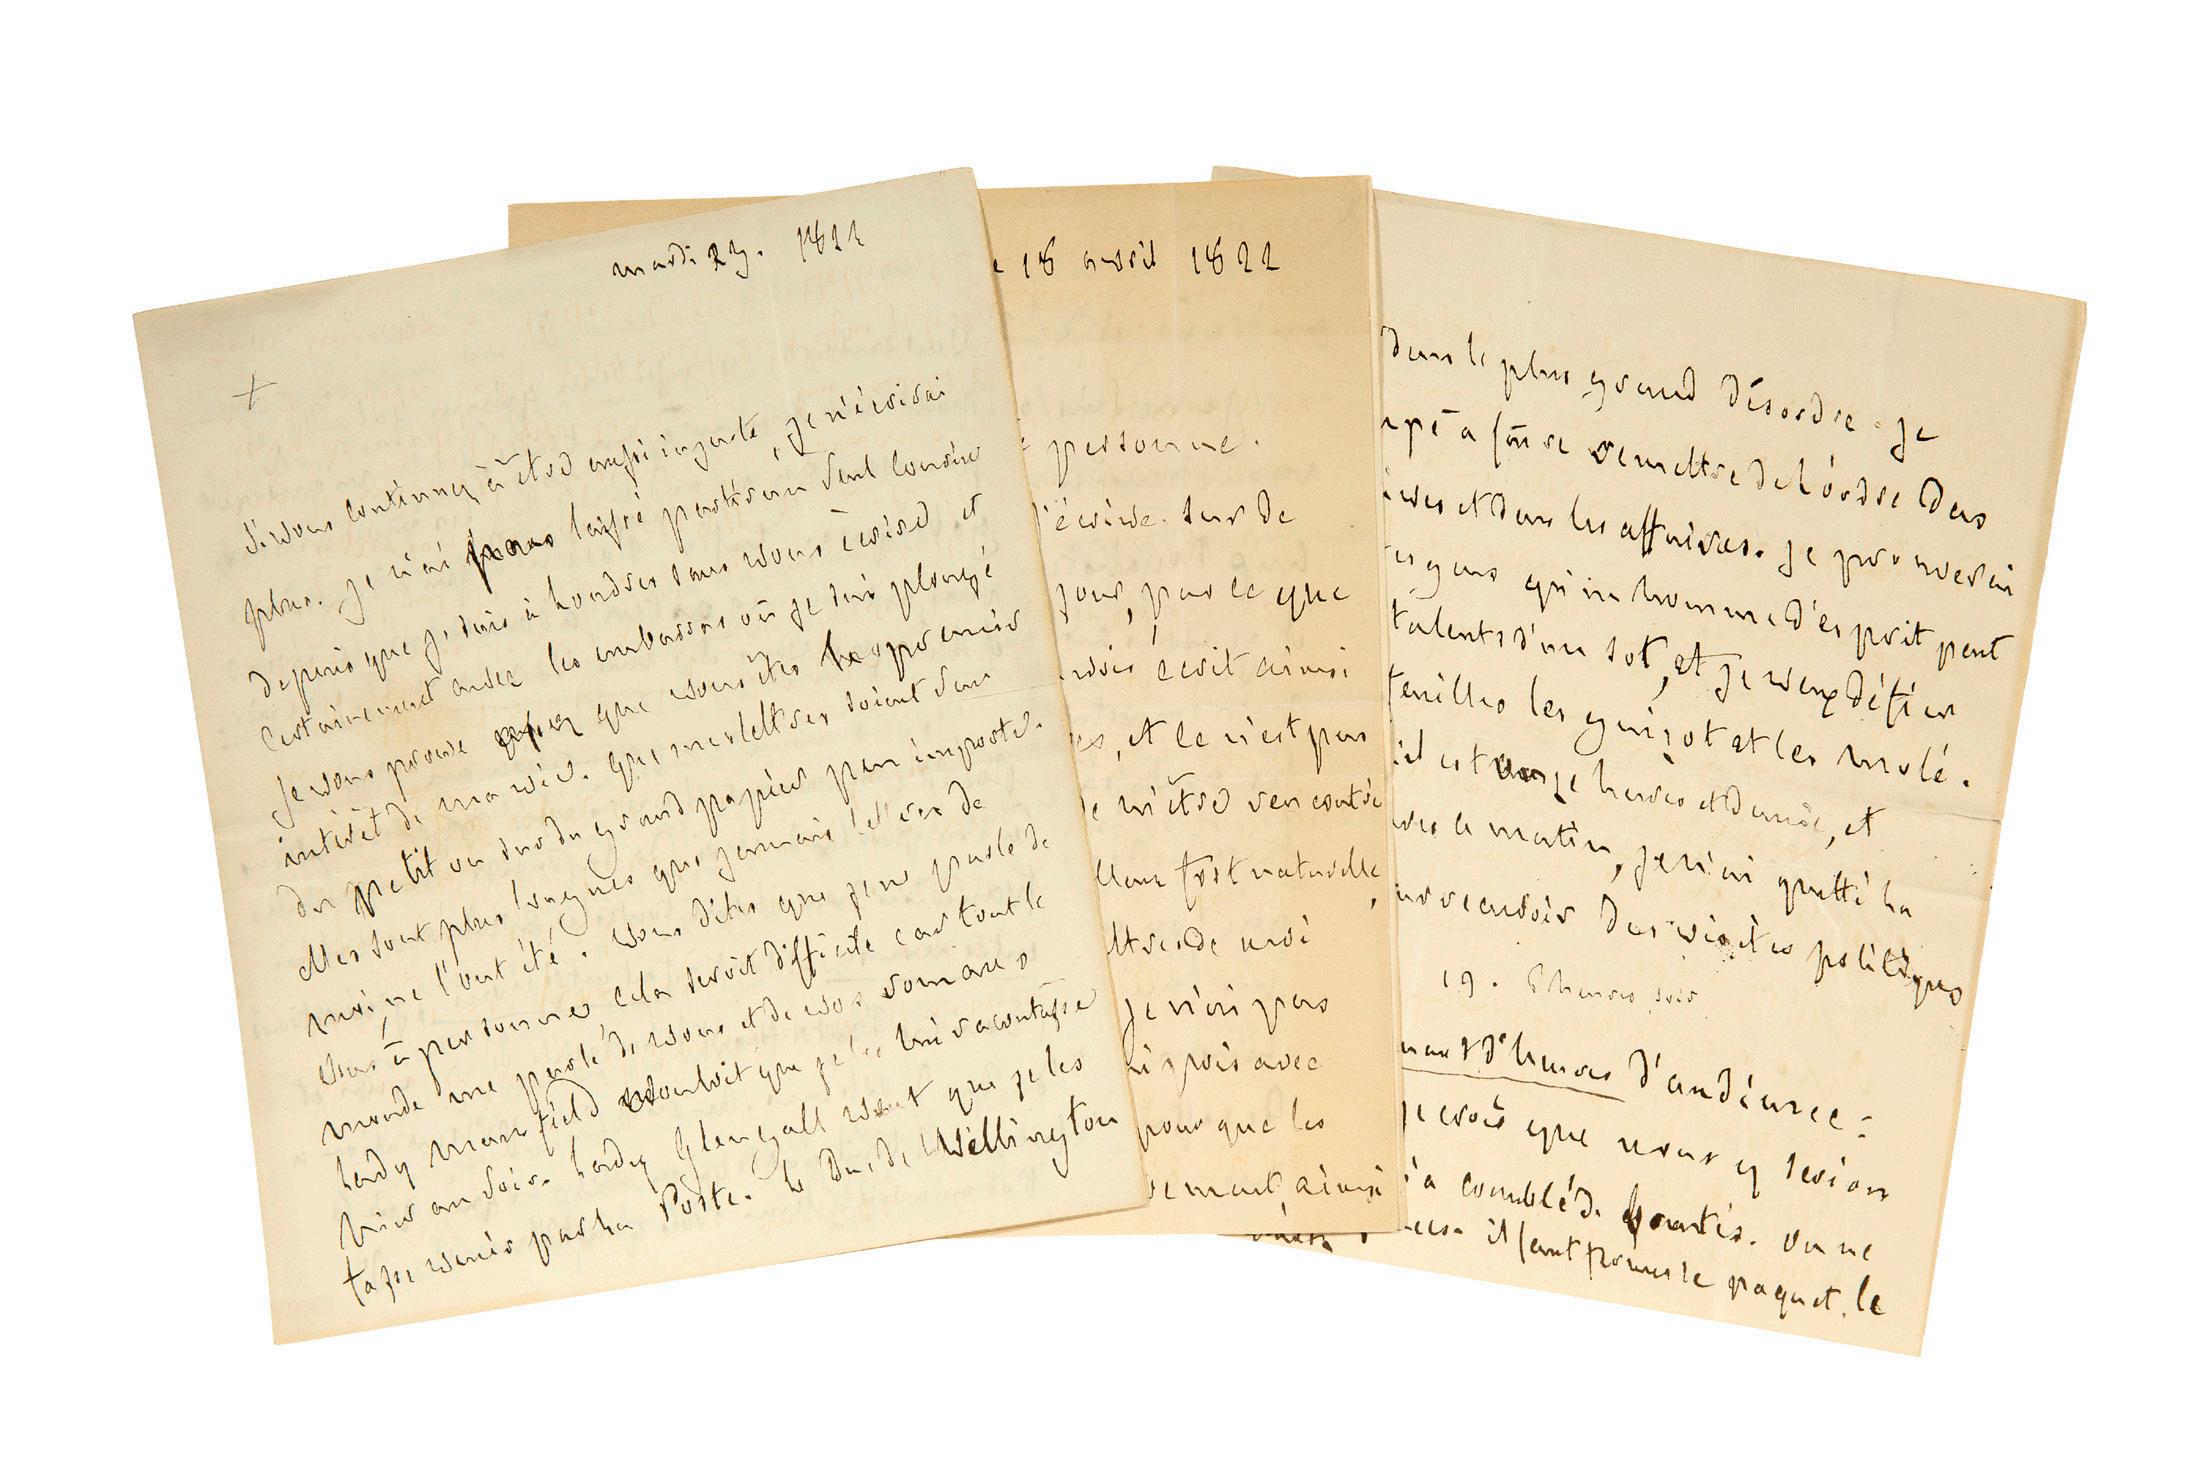 mardi 23. 1822
Si vous continuez à être aussi injuste, je n'écrirai
plus. je n'ai pas laissé partir un seul courier
depuis que je suis à Londres sans vous écrire et
certainement avec les embarras où je suis plongé
je vous prouve assez que vous êtes le premier
intérêt de ma vie. que mes lettres soient sur
du petit ou sur du grand papier peu importe.
elles sont plus longues que jamais lettres de
moi ne l'ont été. vous dites que je ne parle de
vous à personne cela seroit difficile car tout le
monde me parle de vous et de vos romans
Lady Mansfield vouloit que je les lui racontasse
hier au soir. Lady Glengall veut que je les
fasse venir par la Poste. le Duc de Wellington
18 avril 1822
personne.
j'écrive. sur de
jour, parce que
écrit ainsi
, et ce n'est pas
m'être rencontré
fort naturelle,
de moi
je n'ai pas
avec
pour que les
ainsi
dans le plus grand désordre. je
à faire remettre de l'ordre dans
et dans les affaires. je prouverai
gens qu'un homme d'esprit peut
talents d'un sot, et je veux défier
les guizot et les molé.
il est onze heures et demie, et
le matin, je n'ai quitté la
recevoir des visites politiques
19. 6 heures soir
d'heures d'audience :
je crois que nous y serions
comblé de bontés. on ne
il faut fermer le paquet. le